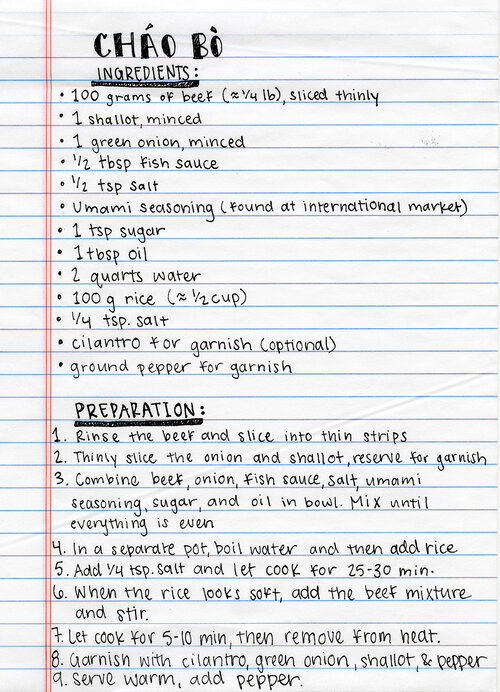 CHÁO BÒ
INGREDIENTS:
• 100 grams of beef (≈ 1/4 lb), sliced thinly
• 1 shallot, minced
• 1 green onion, minced
• 1/2 tbsp fish sauce
• 1/2 tsp salt
• Umami seasoning (found at international market)
• 1 tsp sugar
• 1 tbsp oil
• 2 quarts water
• 100 g rice (≈ 1/2 cup)
• 1/4 tsp. salt
• cilantro for garnish (optional)
• ground pepper for garnish
PREPARATION:
1. Rinse the beef and slice into thin strips
2. Thinly slice the onion and shallot, reserve for garnish
3. Combine beef, onion, fish sauce, salt, umami
seasoning, sugar, and oil in bowl. Mix until
everything is even
4. In a separate pot, boil water and then add rice
5. Add 1/4 tsp. salt and let cook for 25-30 min.
6. When the rice looks soft, add the beef mixture
and stir.
7. Let cook for 5-10 min, then remove from heat.
8. Garnish with cilantro, green onion, shallot, & pepper
9. Serve warm, add pepper.